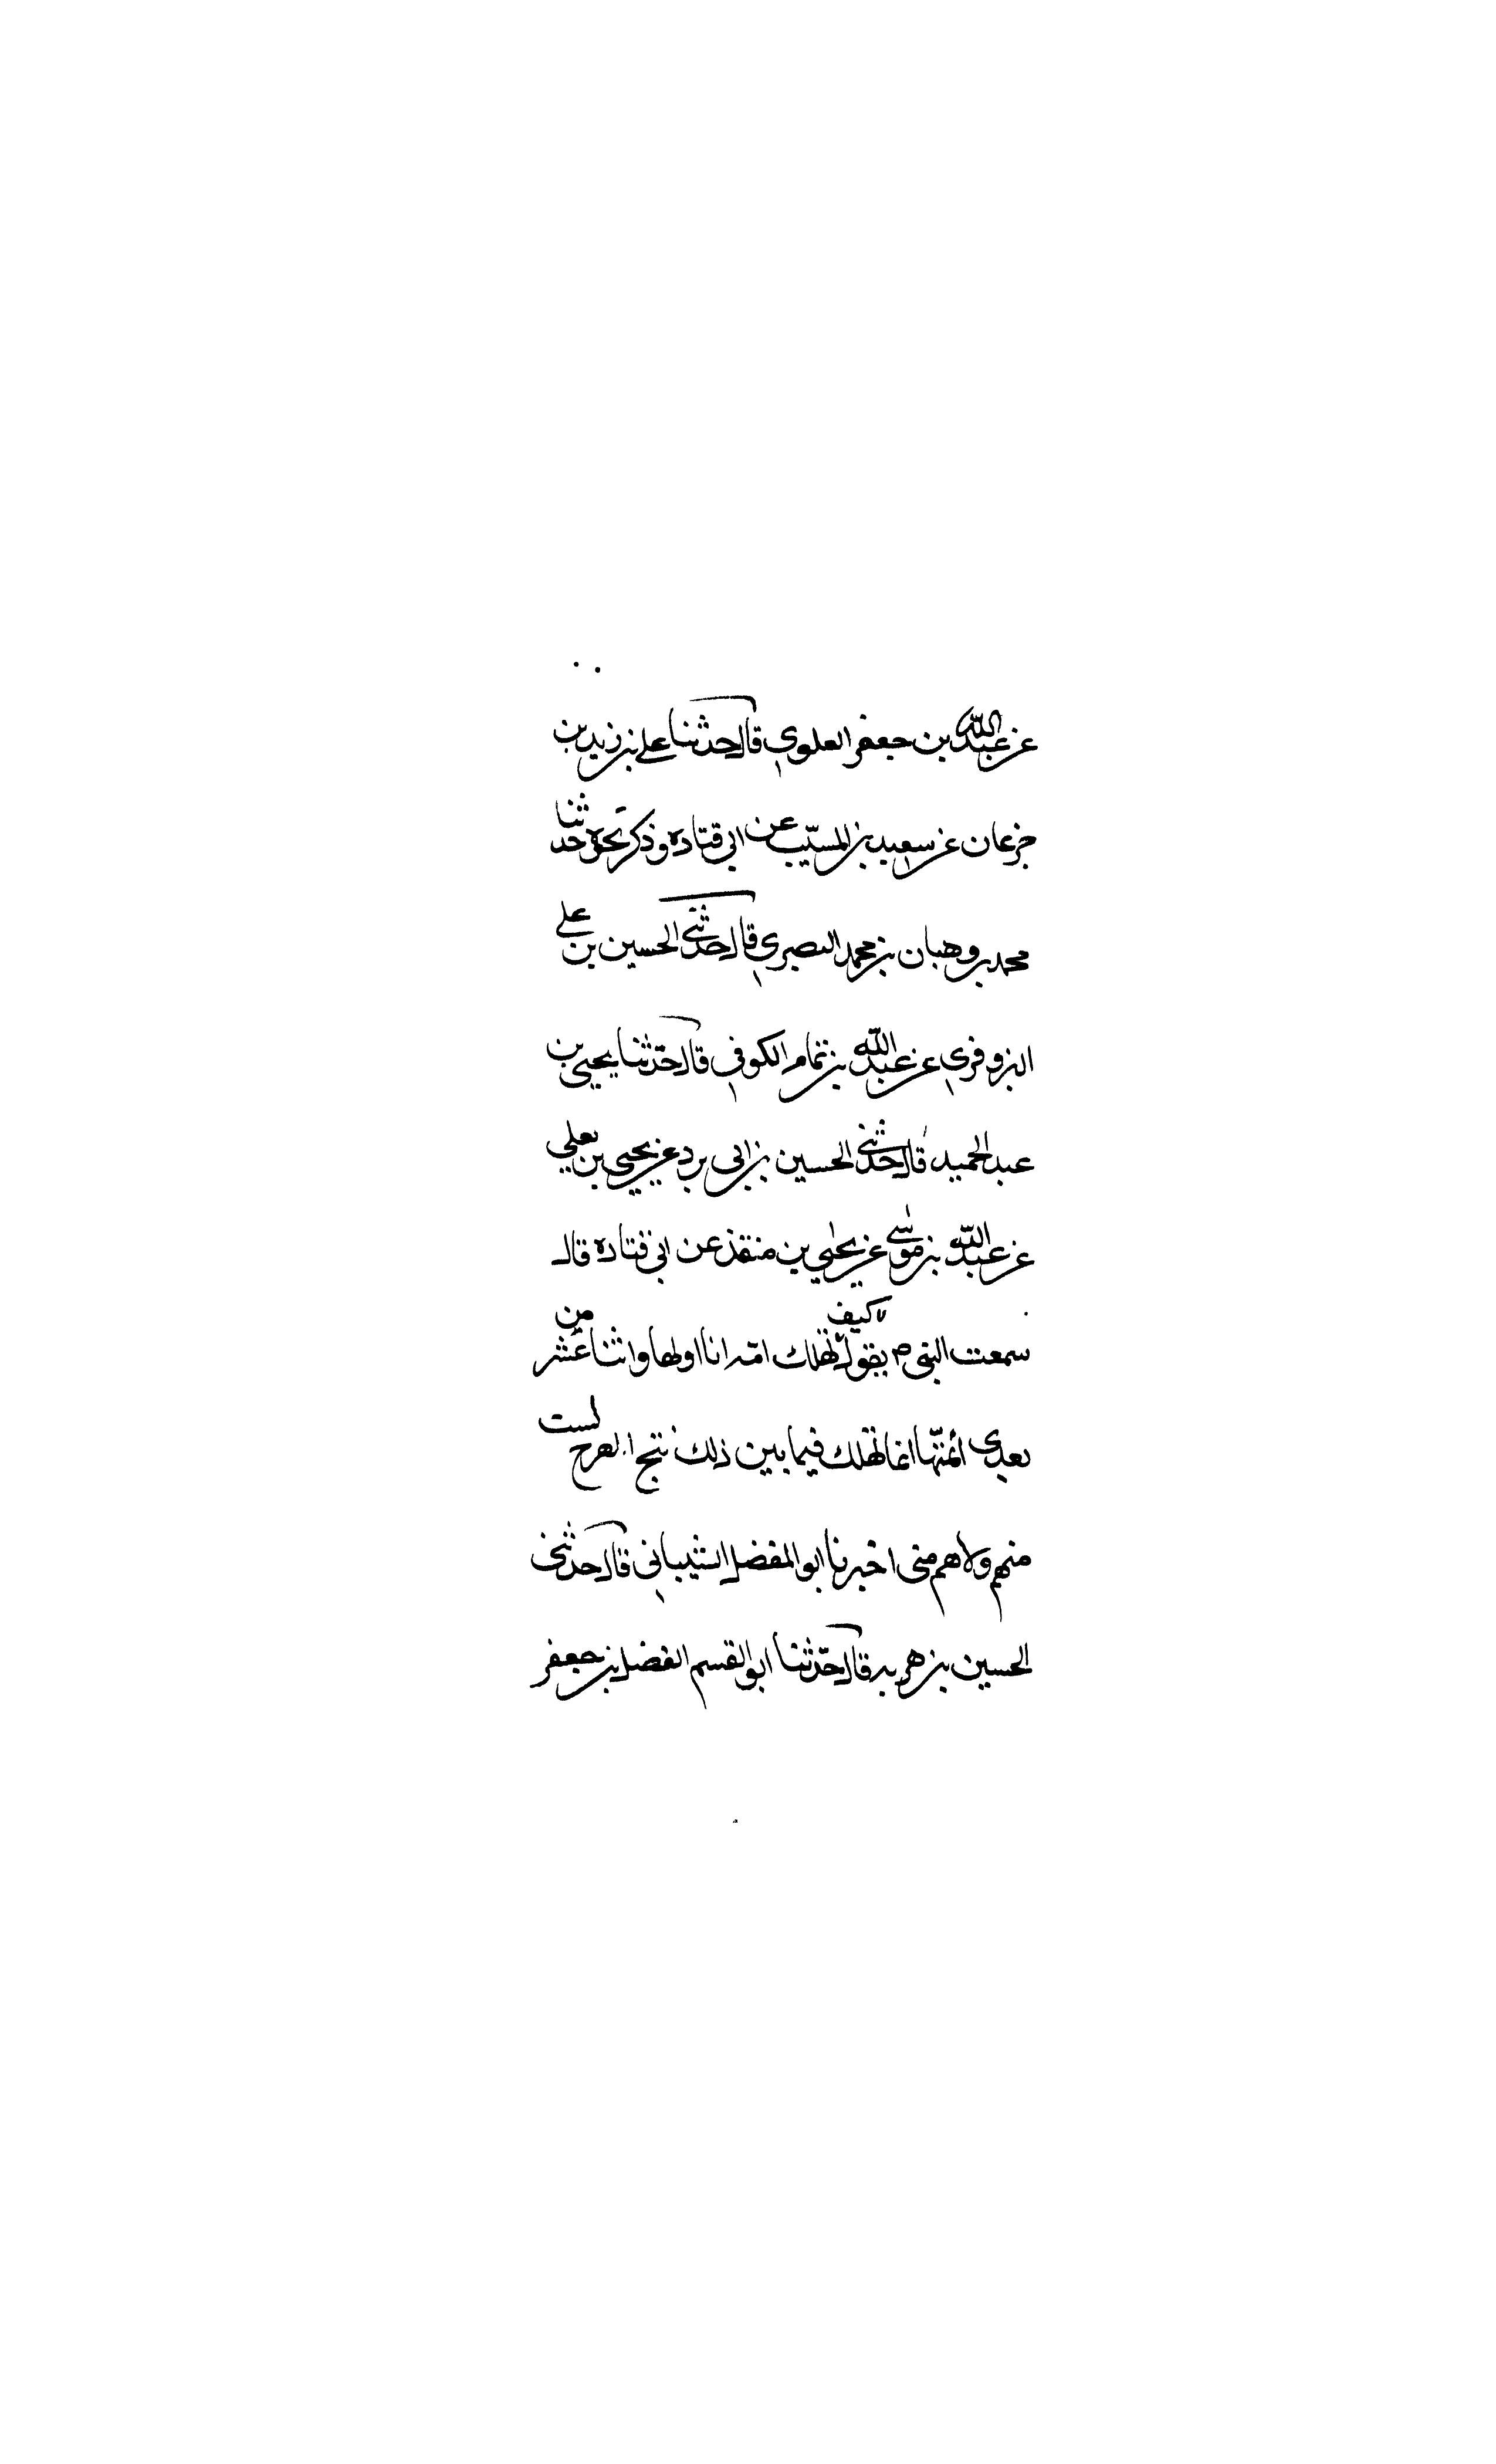 عن عبد الله بن جعفر العلوي قال حدثنا علي بن زيد بن
جزعان عن سعيد بن المسيّب عن ابي قتاده وذكر نحوه حدثنا
محمد بن وهبان بن محمد البصري قال حدثني الحسين بن علي
البزوفري عن عبد الله بن تمام الكوفي قال حدّثنا يحيى بن
عبد الحميد قال حدثني الحسين بن ابي برد عن يحيى بن يعلي
عن عبد الله بن موسى عن يحيى بن منقذ عن ابي قتاده قال
سمعت النبي ص يقول كيف تهلك امّة انا اولها واثنا عشر من
بعدي ائمّتها انما تهلك فيما بين ذلك نتج الهرج لست
منهم ولا هم مني اخبرنا ابو المفضل الشيباني قال حدثني
الحسين بن قال حدّثنا ابو القسم الفضل بن جعفر